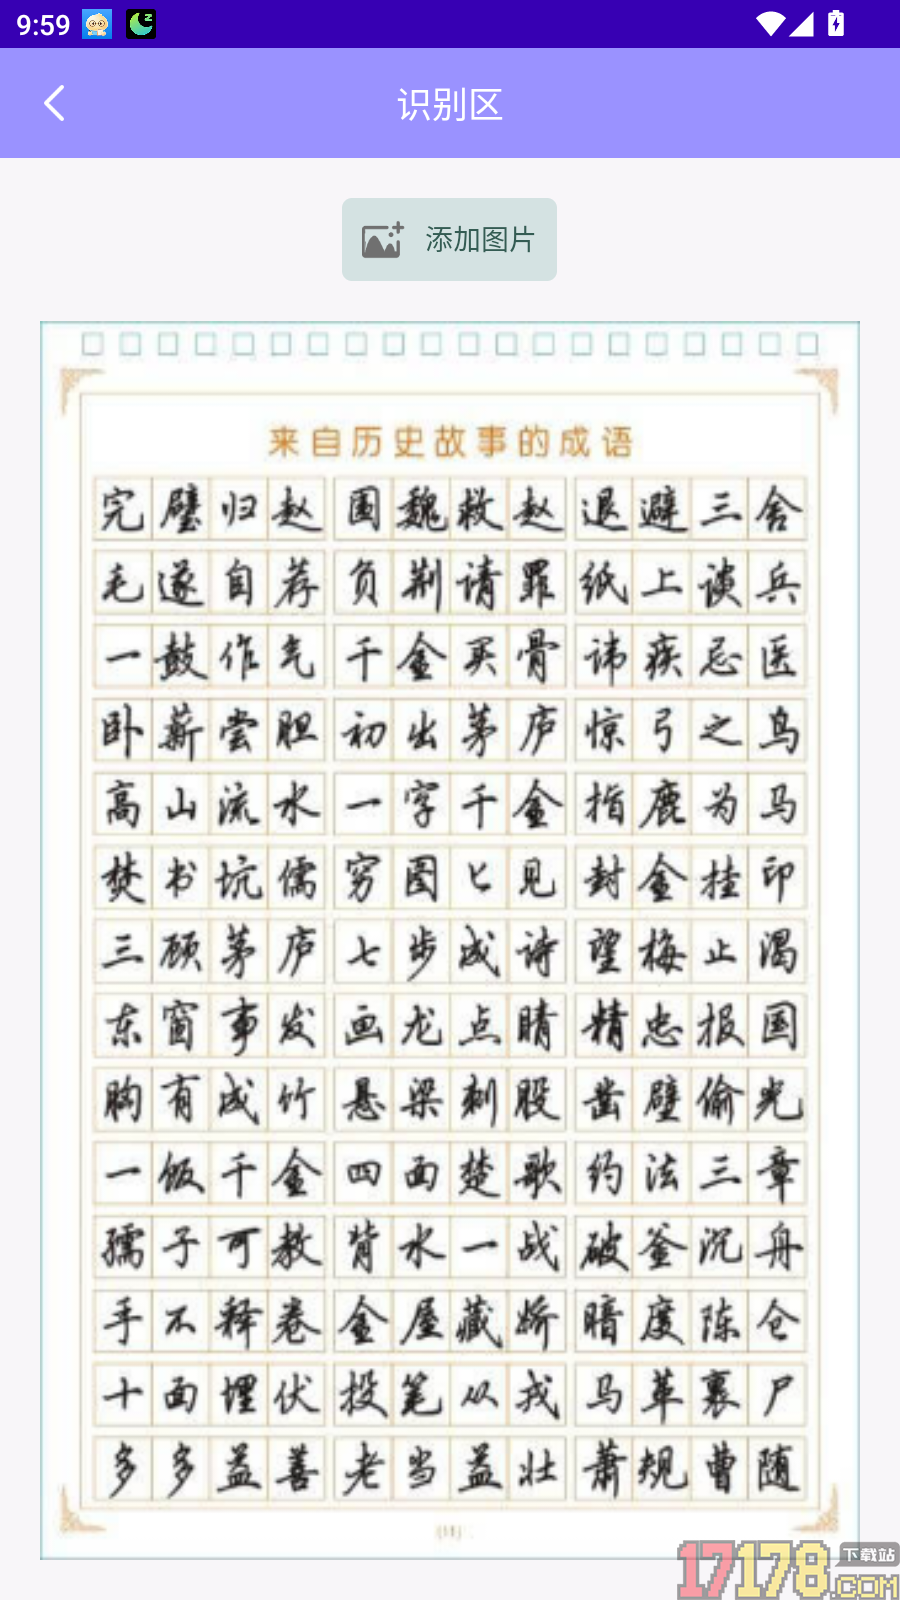 9:59
识别区
添加图片
来自历史故事的成语
完璧归赵 围魏救赵 退避三舍
毛遂自荐 负荆请罪 纸上谈兵
一鼓作气 千金买骨 讳疾忌医
卧薪尝胆 初出茅庐 惊弓之鸟
高山流水 一字千金 指鹿为马
焚书坑儒 穷图匕见 封金挂印
三顾茅庐 七步成诗 望梅止渴
东窗事发 画龙点睛 精忠报国
胸有成竹 悬梁刺股 凿壁偷光
一饭千金 四面楚歌 约法三章
孺子可教 背水一战 破釜沉舟
手不释卷 金屋藏娇 暗度陈仓
十面埋伏 投笔从戎 马革裹尸
多多益善 老当益壮 萧规曹随
(11)
17178.COM
下载站